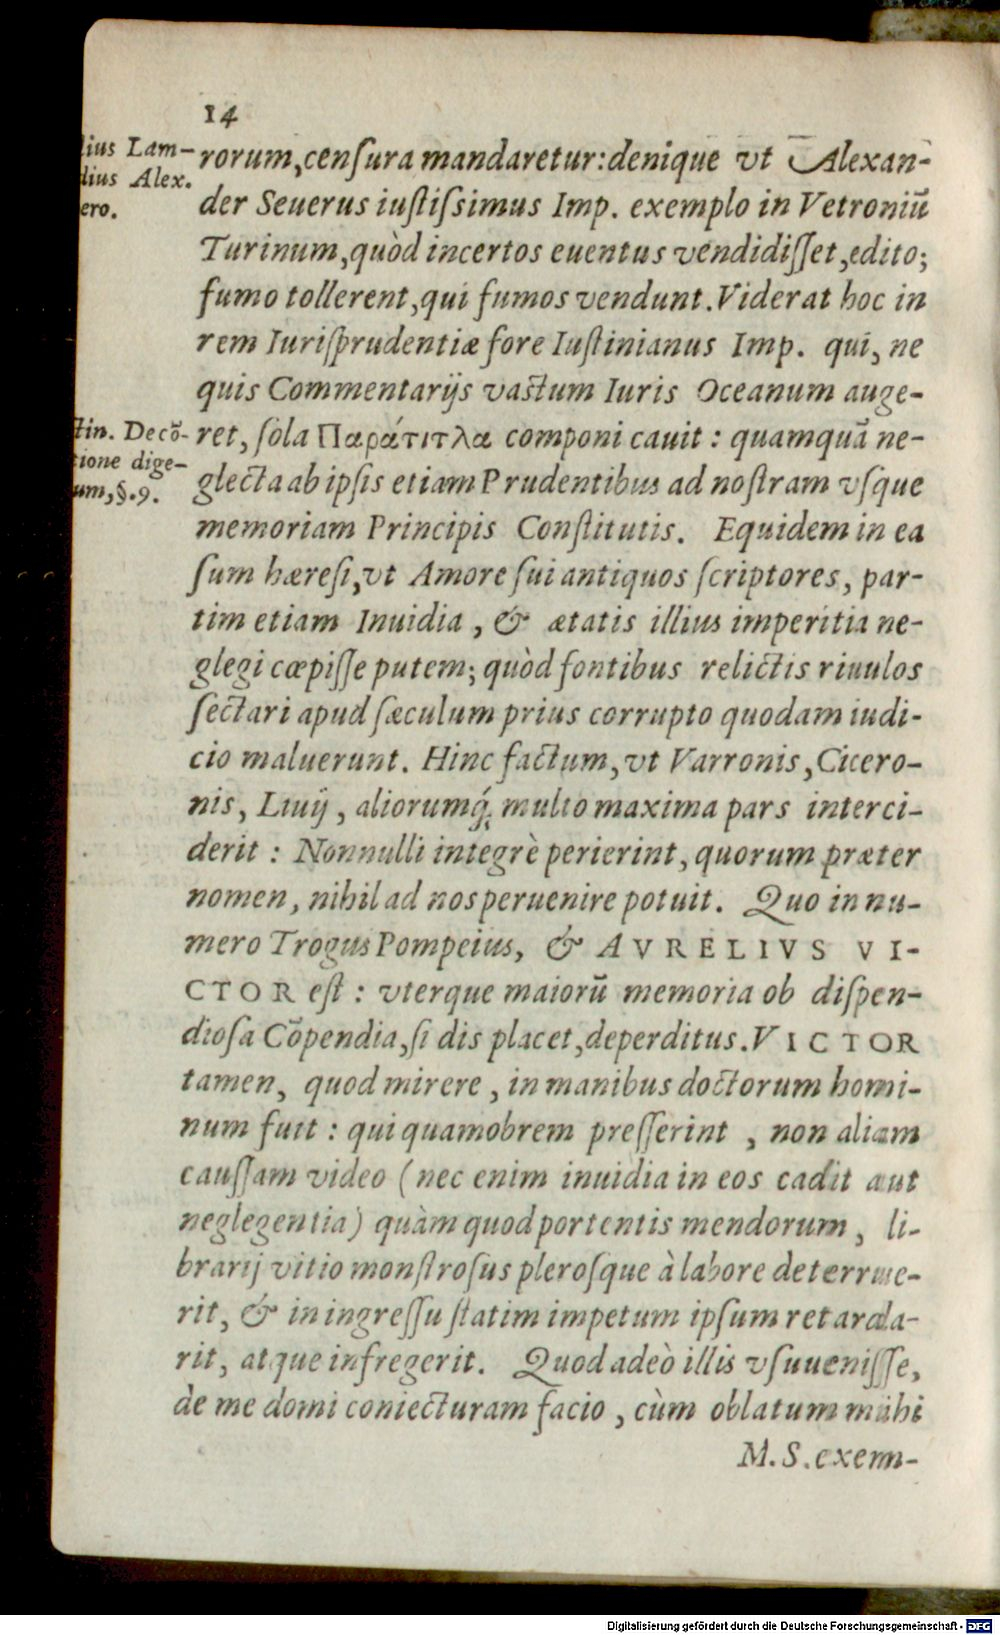 14
lius Lam-
dius Alex.
ero.
rorum, cenſura mandaretur: denique vt Alexan-
der Seuerus iuſtiſsimus Imp. exemplo in Vetroniū
Turinum, quòd incertos euentus vendidiſſet, edito;
fumo tollerent, qui fumos vendunt. Viderat hoc in
rem Iuriſprudentiæ fore Iuſtinianus Imp. qui, ne
quis Commentarijs vastum Iuris Oceanum auge-
ſtin. Decō-
tione dige-
um, §. 9.
ret, ſola Παράτιτλα componi cauit: quamquā ne-
glecta ab ipſis etiam Prudentibus ad noſtram vſque
memoriam Principis Conſtitutis. Equidem in ea
ſum hæreſi, vt Amore ſui antiquos ſcriptores, par-
tim etiam Inuidia, & ætatis illius imperitia ne-
glegi cœpiſſe putem; quòd fontibus relictis riuulos
ſectari apud ſæculum prius corrupto quodam iudi-
cio maluerunt. Hinc factum, vt Varronis, Cicero-
nis, Liuij, aliorumq́; multo maxima pars interci-
derit: Nonnulli integrè perierint, quorum præter
nomen, nihil ad nos peruenire potuit. Quo in nu-
mero Trogus Pompeius, & AVRELIVS VI-
CTOR eſt: vterque maiorū memoria ob diſpen-
dioſa Cōpendia, ſi dis placet, deperditus. VICTOR
tamen, quod mirere, in manibus doctorum homi-
num fuit: qui quamobrem preſſerint, non aliam
cauſſam video (nec enim inuidia in eos cadit aut
neglegentia) quàm quod portentis mendorum, li-
brarij vitio monſtroſus pleroſque à labore deterrue-
rit, & in ingreſſu ſtatim impetum ipſum retarda-
rit, atque infregerit. Quod adeò illis vſuueniſſe,
de me domi coniecturam facio, cùm oblatum mihi
M. S. exem-
Digitalisierung gefördert durch die Deutsche Forschungsgemeinschaft - DFG